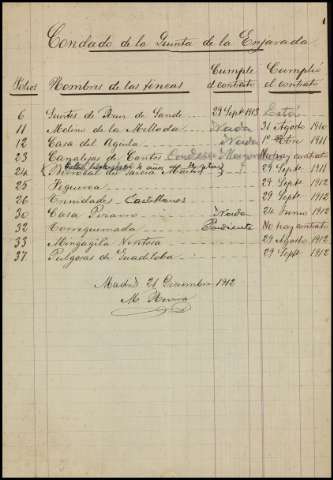 Condado de la Quinta de la Enjarada
Folios Nombres de las fincas Cumple el contrato Cumplió el contrato
6 Juntos de Pour de Sande 29 Sept 1913 Está
11 Molino de la Mellada Nada 31 Agosto 1910
12 Casa del Aguila Nada 1911
23 Canalejas de Cantos Condesa No hay contrato
24 de Garcia 29 Sept 1911
25 Figueroa 29 Sept 1912
26 Enmedades Castellanos 29 Sept 1912
30 Casa Pizarro Nada 24 Junio 1912
32 Corraquemada Pendiente No hay contrato
33 Mingagila Ventosa 29 Agosto 1912
37 Pulgosas de Guadiloba 29 Sept 1912
Madrid 21 Diciembre 1912
M.